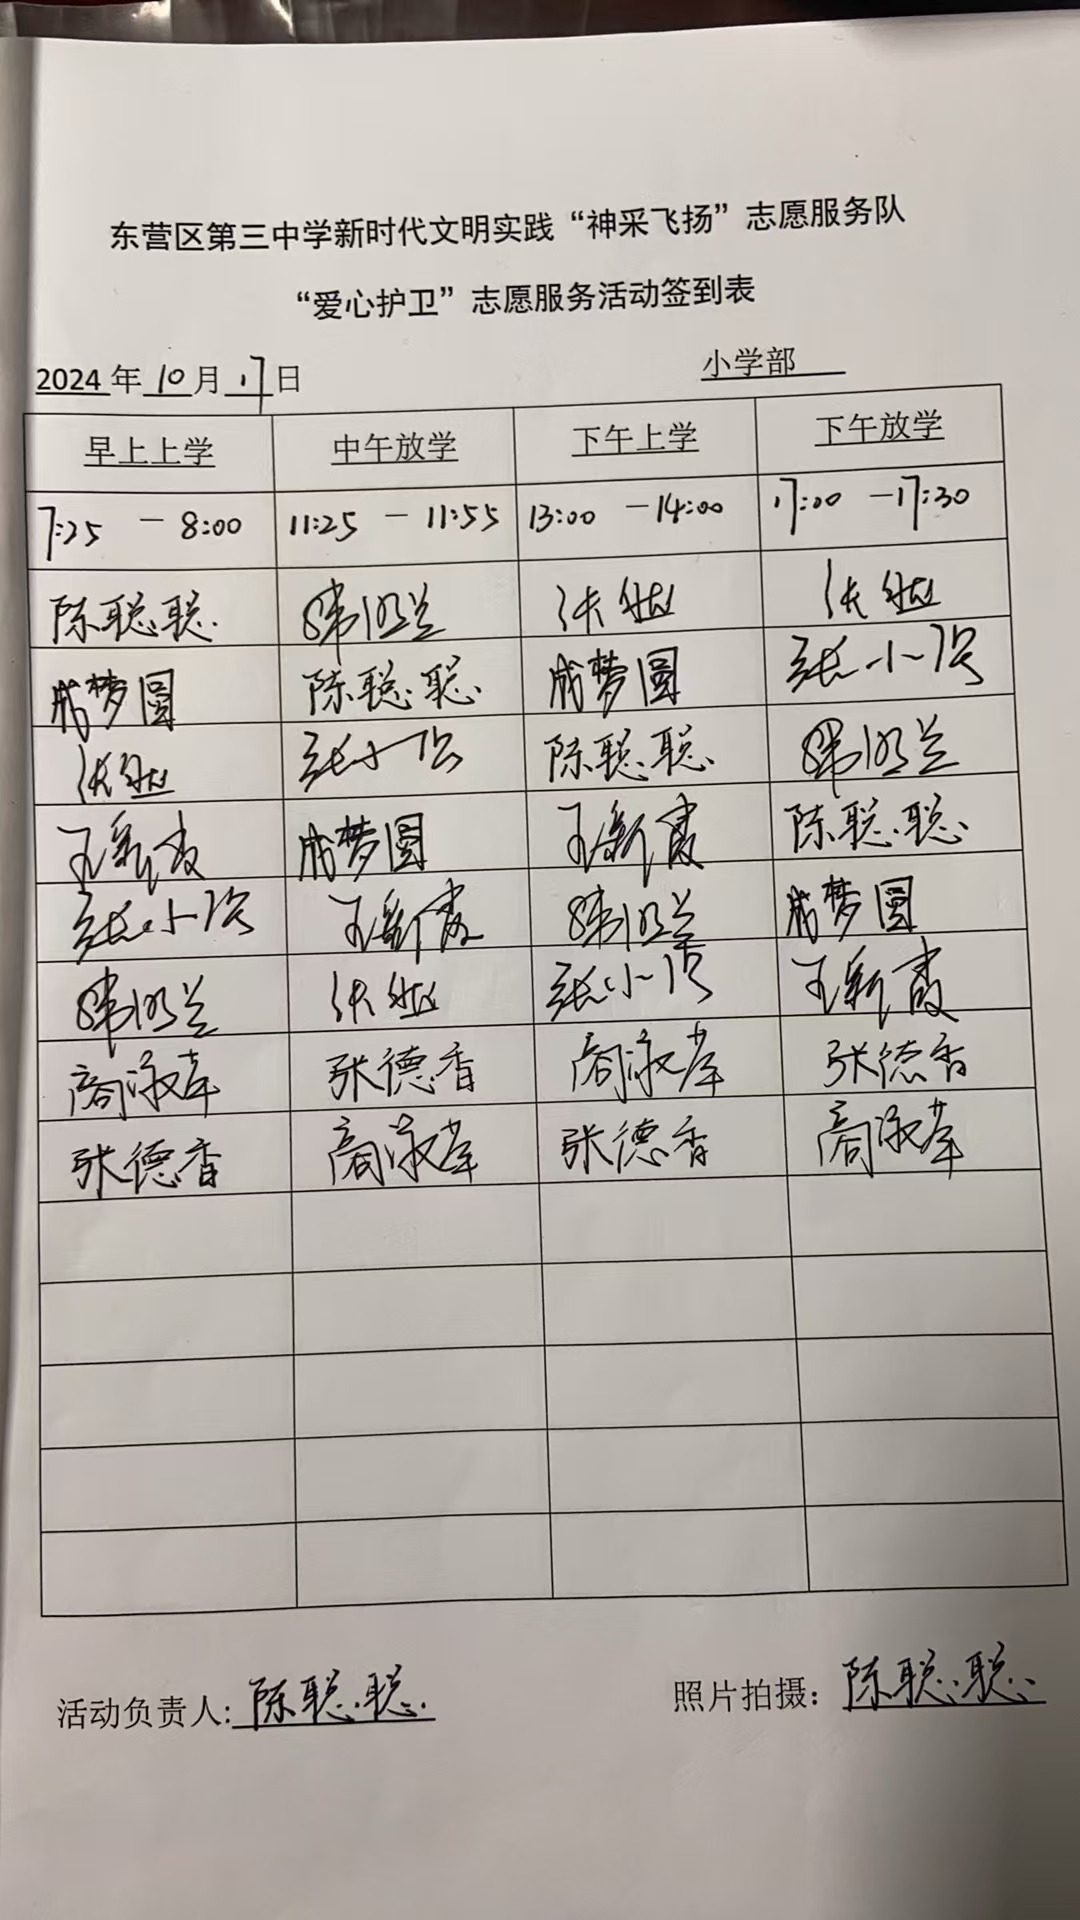 东营区第三中学新时代文明实践“神采飞扬”志愿服务队
“爱心护卫”志愿服务活动签到表
2024 年 10 月 17 日 小学部
早上上学 中午放学 下午上学 下午放学
7:25 - 8:00 11:25 - 11:55 13:00 - 14:00 17:00 - 17:30
陈聪聪
成梦圆 陈聪聪 成梦圆 张小
张小 陈聪聪
王新霞 成梦圆 王新霞 陈聪聪
张小 王新霞 成梦圆
张小 王新霞
商淑苹 张德香 商淑苹 张德香
张德香 商淑苹 张德香 商淑苹
活动负责人: 陈聪聪 照片拍摄: 陈聪聪